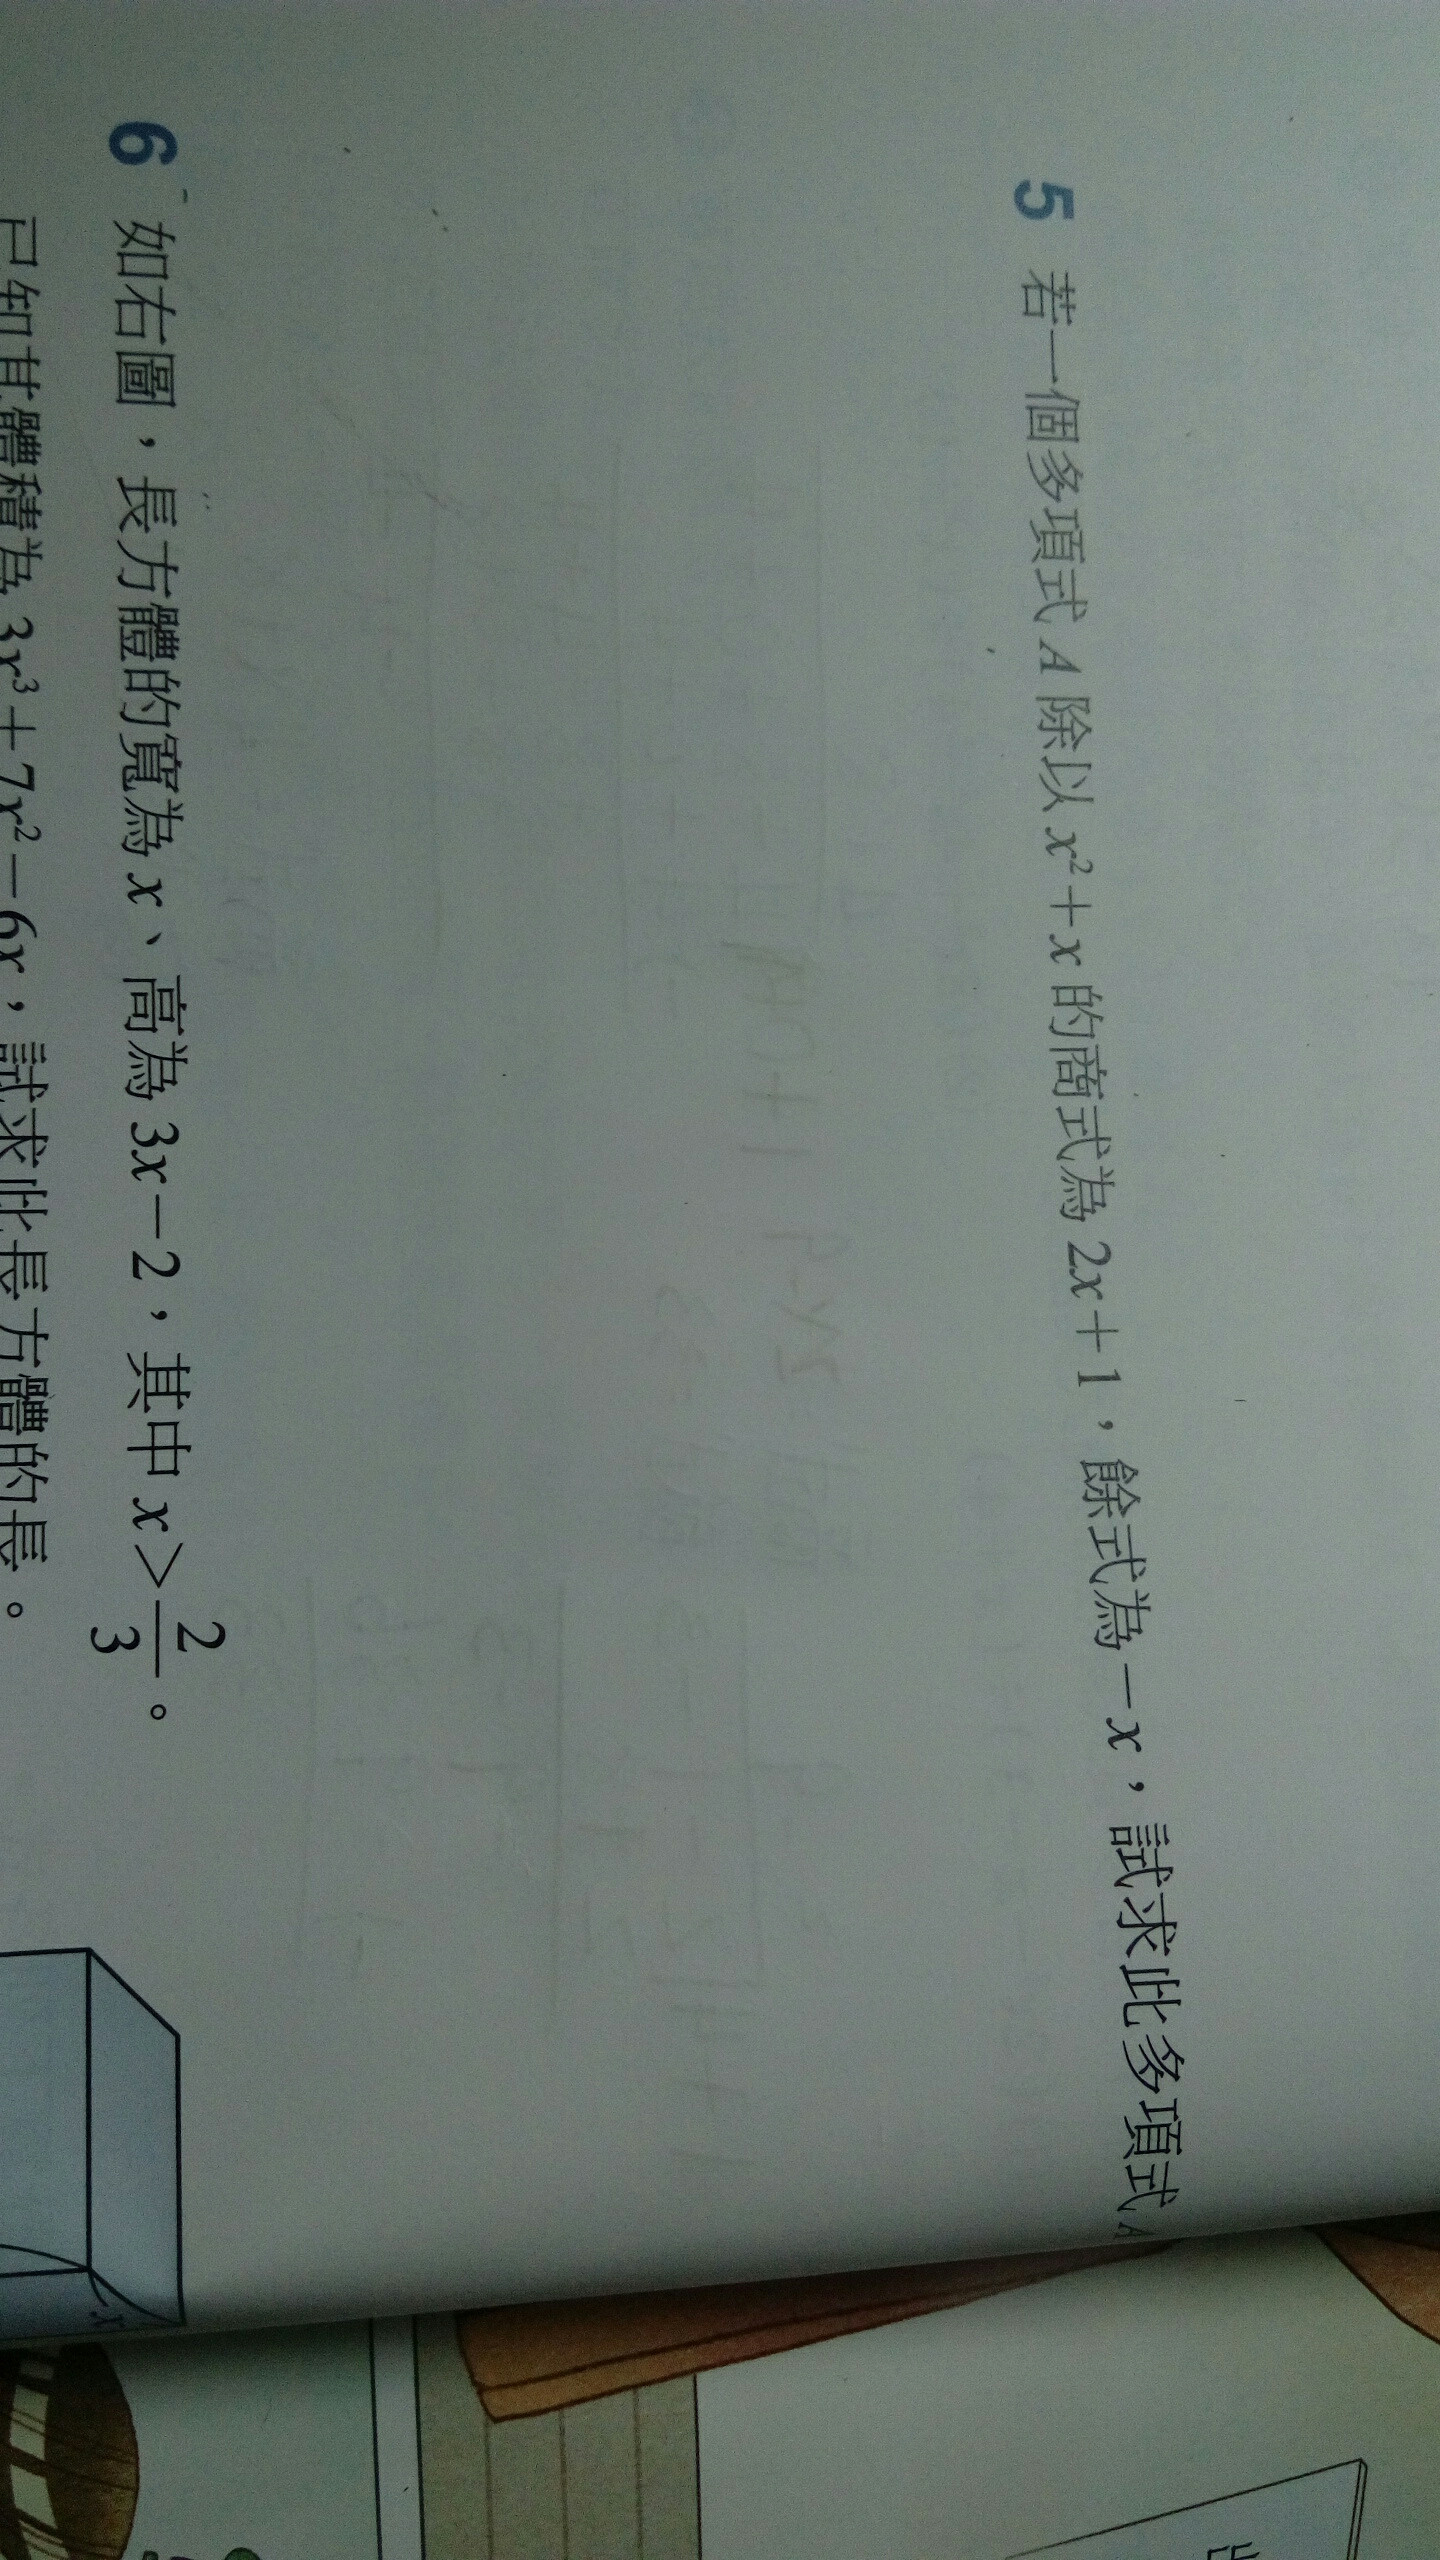 5 若一個多項式 A 除以 x²+x 的商式為 2x+1，餘式為 −x，試求此多項式 A
6 如右圖，長方體的寬為 x、高為 3x−2，其中 x>2/3。
已知其體積為 3x³+7x²−6x，試求此長方體的長。
x